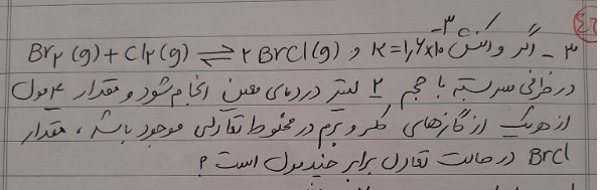 ۴۲
۳ - اگر واکنش K = ۱٫۶×۱۰⁻³ و Br₂(g) + Cl₂(g) ⇌ ۲BrCl(g)
در ظرفی سربسته با حجم ۲ لیتر در دمای معین انجام شود و مقدار ۴ مول
از هریک از گازهای کلر و برم در مخلوط تعادلی موجود باشد، مقدار
BrCl در حالت تعادل برابر چند مول است؟